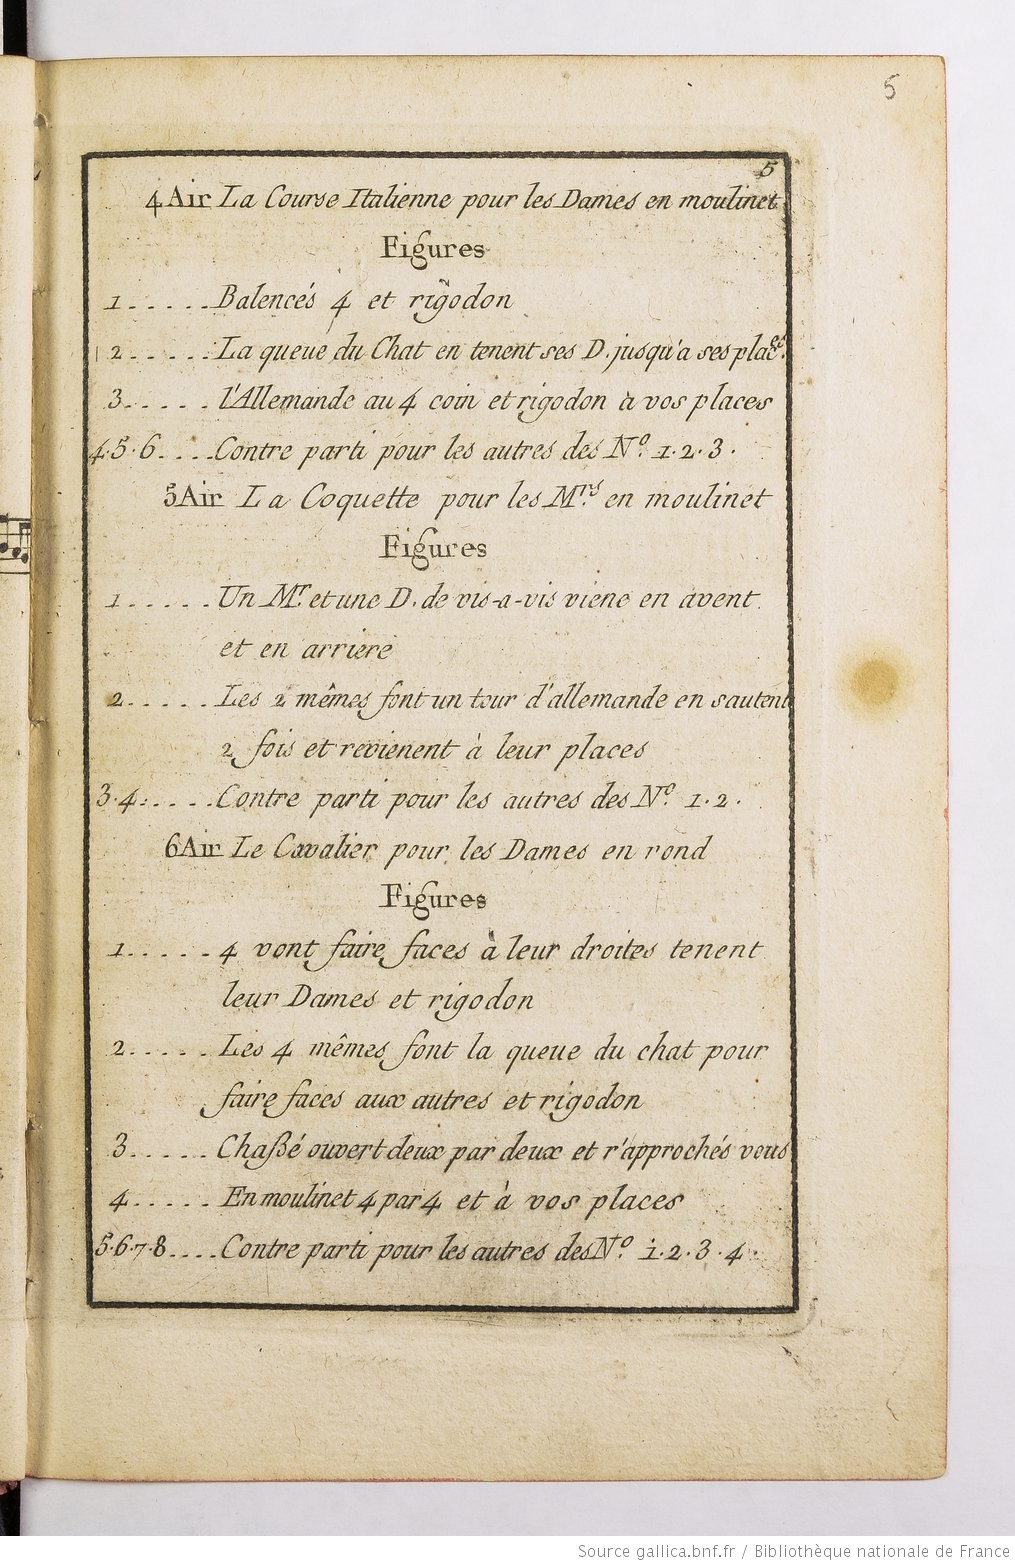 5
5
4 Air La Course Italienne pour les Dames en moulinet
Figures
1.....Balencés 4 et rigodon
2.....La queue du Chat en tenent ses D. jusqu'a ses places.
3.....l'Allemande au 4 coin et rigodon à vos places
4.5.6....Contre parti pour les autres des No. 1.2.3.
5 Air La Coquette pour les Mrs. en moulinet
Figures
1.....Un Mr. et une D. de vis-a-vis viene en avent
et en arriere
2.....Les 2 mêmes font un tour d'allemande en sautent
2 fois et revienent à leur places
3.4.....Contre parti pour les autres des No. 1.2.
6 Air Le Cavalier pour les Dames en rond
Figures
1.....4 vont faire faces à leur droites tenent
leur Dames et rigodon
2.....Les 4 mêmes font la queue du chat pour
faire faces aux autres et rigodon
3.....Chaßé ouvert deux par deux et r'approchés vous
4.....En moulinet 4 par 4 et à vos places
5.6.7.8....Contre parti pour les autres des No. 1.2.3.4.
Source gallica.bnf.fr / Bibliothèque nationale de France